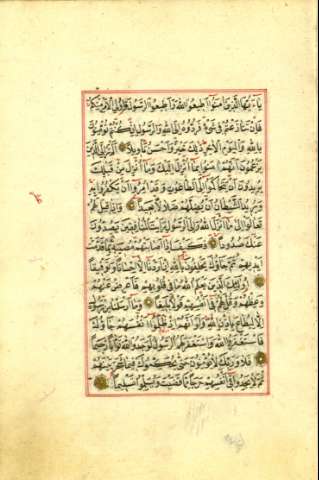 يَاءَيُّهَا الَّذِينَ آمَنُوا أَطِيعُوا اللّٰهَ وَأَطِيعُوا الرَّسُولَ وَأُولِي الْأَمْرِ مِنْكُمْ
فَإِنْ تَنَازَعْتُمْ فِي شَيْءٍ فَرُدُّوهُ إِلَى اللّٰهِ وَالرَّسُولِ إِنْ كُنْتُمْ تُؤْمِنُونَ
بِاللّٰهِ وَالْيَوْمِ الْآخِرِ ذٰلِكَ خَيْرٌ وَأَحْسَنُ تَأْوِيلًا أَلَمْ تَرَ إِلَى الَّذِينَ
يَزْعُمُونَ أَنَّهُمْ آمَنُوا بِمَا أُنْزِلَ إِلَيْكَ وَمَا أُنْزِلَ مِنْ قَبْلِكَ
يُرِيدُونَ أَنْ يَتَحَاكَمُوا إِلَى الطَّاغُوتِ وَقَدْ أُمِرُوا أَنْ يَكْفُرُوا بِهِ
وَيُرِيدُ الشَّيْطَانُ أَنْ يُضِلَّهُمْ ضَلَالًا بَعِيدًا وَإِذَا قِيلَ لَهُمْ
تَعَالَوْا إِلَى مَا أَنْزَلَ اللّٰهُ وَإِلَى الرَّسُولِ رَأَيْتَ الْمُنَافِقِينَ يَصُدُّونَ
عَنْكَ صُدُودًا فَكَيْفَ إِذَا أَصَابَتْهُمْ مُصِيبَةٌ بِمَا قَدَّمَتْ
أَيْدِيهِمْ ثُمَّ جَاؤُكَ يَحْلِفُونَ بِاللّٰهِ إِنْ أَرَدْنَا إِلَّا إِحْسَانًا وَتَوْفِيقًا
أُولٰئِكَ الَّذِينَ يَعْلَمُ اللّٰهُ مَا فِي قُلُوبِهِمْ فَأَعْرِضْ عَنْهُمْ
وَعِظْهُمْ وَقُلْ لَهُمْ فِي أَنْفُسِهِمْ قَوْلًا بَلِيغًا وَمَا أَرْسَلْنَا مِنْ رَسُولٍ
إِلَّا لِيُطَاعَ بِإِذْنِ اللّٰهِ وَلَوْ أَنَّهُمْ إِذْ ظَلَمُوا أَنْفُسَهُمْ جَاؤُكَ
فَاسْتَغْفَرُوا اللّٰهَ وَاسْتَغْفَرَ لَهُمُ الرَّسُولُ لَوَجَدُوا اللّٰهَ تَوَّابًا رَحِيمًا
فَلَا وَرَبِّكَ لَا يُؤْمِنُونَ حَتَّى يُحَكِّمُوكَ فِيمَا شَجَرَ بَيْنَهُمْ
ثُمَّ لَا يَجِدُوا فِي أَنْفُسِهِمْ حَرَجًا مِمَّا قَضَيْتَ وَيُسَلِّمُوا تَسْلِيمًا